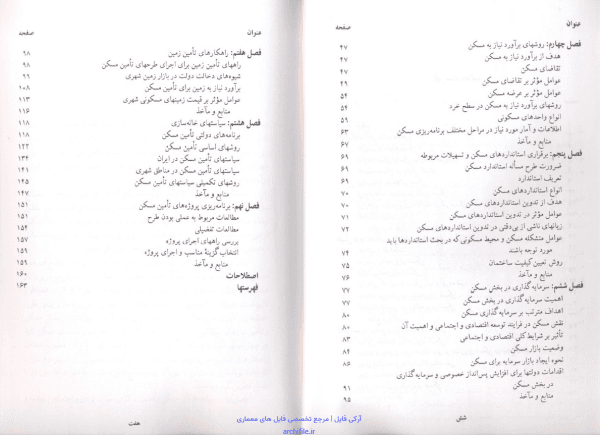 عنوان صفحه
فصل چهارم: روشهای برآورد نیاز به مسکن ۴۷
هدف از برآورد نیاز به مسکن ۴۷
تقاضای مسکن ۴۷
عوامل مؤثر بر تقاضای مسکن ۴۹
عوامل مؤثر بر عرضه مسکن ۵۴
روشهای برآورد نیاز به مسکن در سطح خرد ۵۴
انواع واحدهای مسکونی ۵۷
اطلاعات و آمار مورد نیاز در مراحل مختلف برنامه‌ریزی مسکن ۶۳
منابع و مآخذ ۶۷
فصل پنجم: برقراری استانداردهای مسکن و تسهیلات مربوطه ۶۹
ضرورت طرح مسأله استاندارد مسکن ۶۹
تعریف استاندارد ۶۹
انواع استانداردهای مسکن ۷۰
هدف از تدوین استانداردهای مسکن ۷۰
عوامل مؤثر در تدوین استانداردهای مسکن ۷۱
زیانهای ناشی از بی‌دقتی در تدوین استانداردهای مسکن ۷۲
عوامل متشکله مسکن و محیط مسکونی که در بحث استانداردها باید
مورد توجه باشند ۷۴
روش تعیین کیفیت ساختمان ۷۵
منابع و مآخذ ۷۶
فصل ششم: سرمایه‌گذاری در بخش مسکن ۷۷
اهمیت سرمایه‌گذاری در بخش مسکن ۷۷
اهداف مترتب بر سرمایه‌گذاری مسکن ۸۰
نقش مسکن در فرایند توسعه اقتصادی و اجتماعی و اهمیت آن ۸۰
تأثیر بر شرایط کلی اقتصادی و اجتماعی ۸۳
وضعیت بازار مسکن ۸۴
نحوه ایجاد بازار سرمایه برای مسکن ۸۶
اقدامات دولتها برای افزایش پس‌انداز خصوصی و سرمایه‌گذاری
در بخش مسکن ۹۱
منابع و مآخذ ۹۵
شش
عنوان صفحه
فصل هفتم: راهکارهای تأمین زمین ۹۸
راههای تأمین زمین برای اجرای طرحهای تأمین مسکن ۹۸
شیوه‌های دخالت دولت در بازار زمین شهری ۹۹
برآورد نیاز به زمین برای تأمین مسکن ۱۰۸
عوامل مؤثر بر قیمت زمینهای مسکونی شهری ۱۱۳
منابع و مآخذ ۱۱۶
فصل هشتم: سیاستهای خانه‌سازی ۱۱۸
برنامه‌های دولتی تأمین مسکن ۱۱۸
روشهای اساسی تأمین مسکن ۱۲۲
سیاستهای تأمین مسکن در ایران ۱۳۴
سیاستهای تأمین مسکن در مناطق شهری ۱۴۱
روشهای تکمیلی سیاستهای تأمین مسکن ۱۴۵
منابع و مآخذ ۱۴۷
فصل نهم: برنامه‌ریزی پروژه‌های تأمین مسکن ۱۵۱
مطالعات مربوط به عملی بودن طرح ۱۵۱
مطالعات تفضیلی ۱۵۴
بررسی راههای اجرای پروژه ۱۵۷
انتخاب گزینهٔ مناسب و اجرای پروژه ۱۵۹
منابع و مآخذ ۱۵۹
اصطلاحات ۱۶۰
فهرستها ۱۶۳
هفت
آرکی فایل | مرجع تخصصی فایل های معماری
archifile.ir